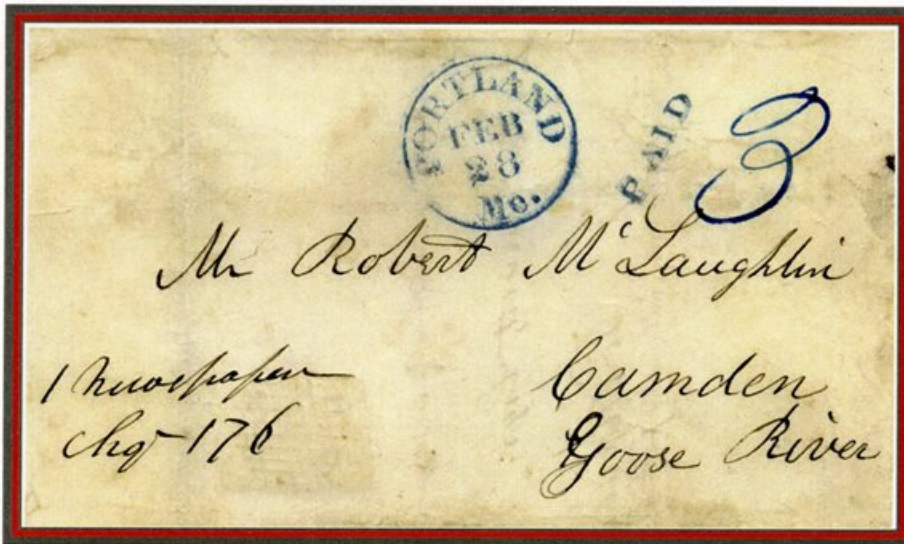 PORTLAND
FEB
28
Me.
PAID
3
Mr Robert McLaughlin
1 Newspaper
Chg 176
Camden
Goose River